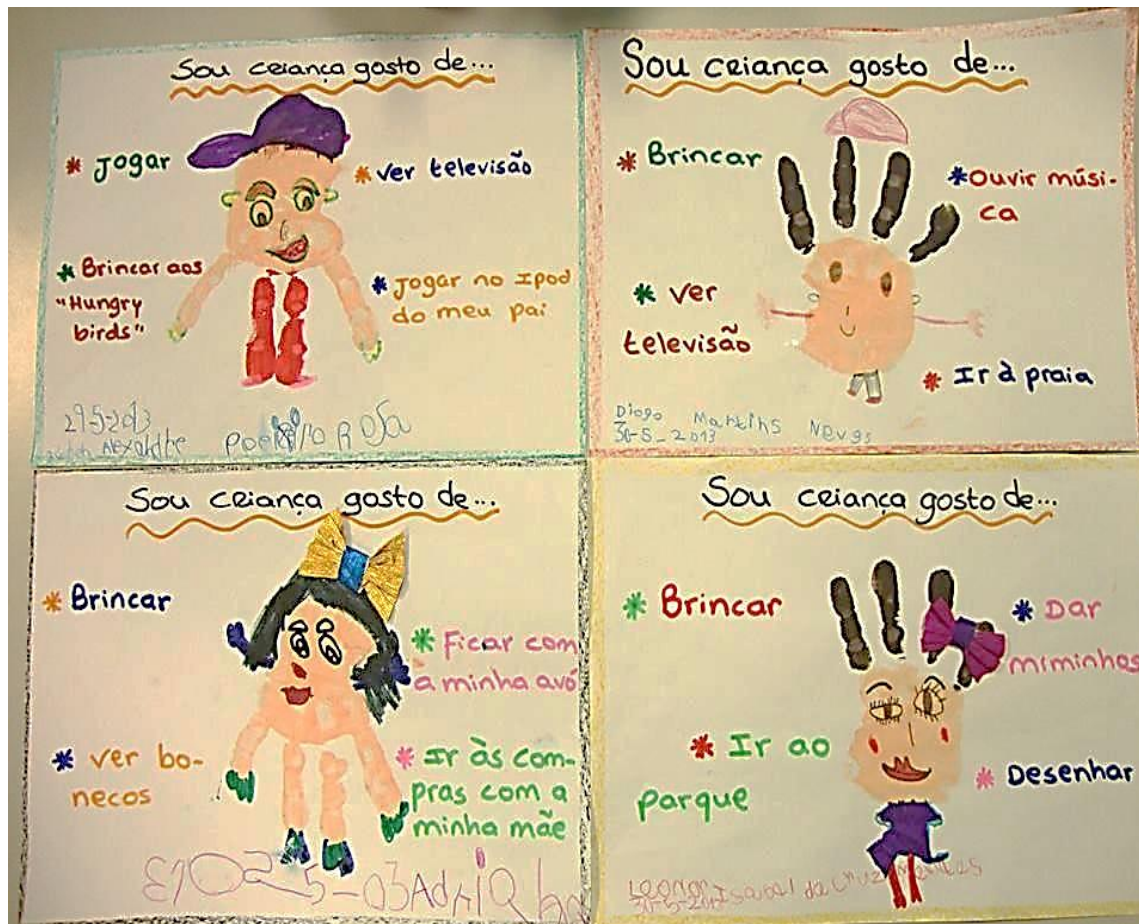 Sou criança gosto de...
* Jogar
* ver televisão
* Brincar aos
"Hungry
birds"
* Jogar no Ipod
do meu pai
29-5-2013
Alexandre
Sou criança gosto de...
* Brincar
* Ouvir músi-
ca
* ver
televisão
* Ir à praia
Diogo Martins Neves
30-5-2013
Sou criança gosto de...
* Brincar
* Ficar com
a minha avó
* ver bo-
necos
* Ir às com-
pras com a
minha mãe
Sou criança gosto de...
* Brincar
* Dar
miminhos
* Ir ao
parque
* Desenhar
Leonor Isabel da Cruz